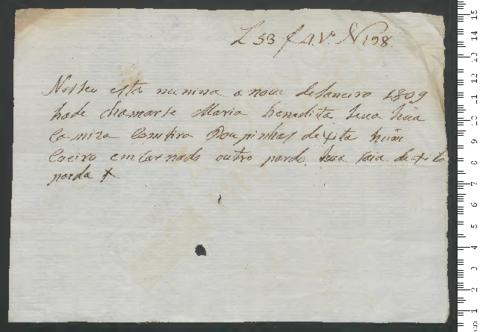 L 53 f 4 V.º N 198.
Nasseu esta minina a nove de Janeiro 1809
hade chamarse Maria benedita leva hua
Camiza Comhiro Roupinhas de xita hum
Coeiro emcarnado outro pardo hua saia de xita
parda x